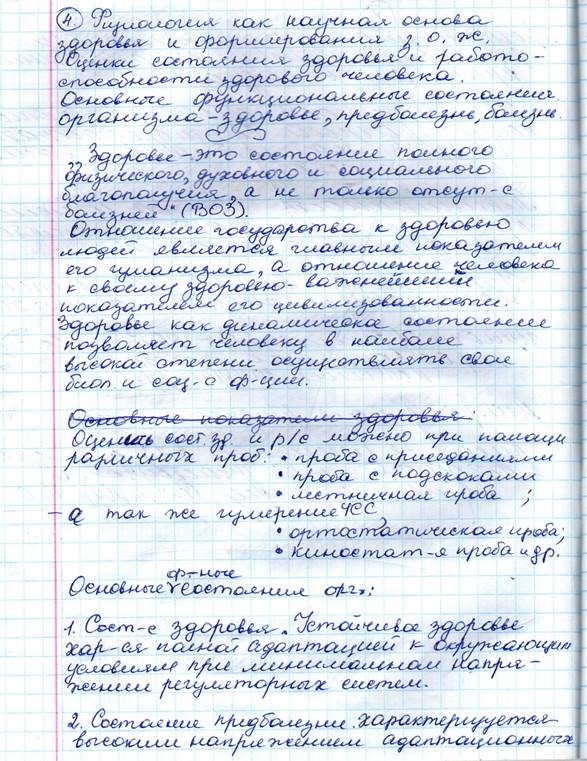 4. Физиология как научная основа
здоровья и формирования з. о. ж.
Оценки состояния здоровья и работо-
способности здорового человека.
Основные функциональные состояния
организма – здоровье, предболезнь, болезнь.
„Здоровье – это состояние полного
физического, духовного и социального
благополучия, а не только отсут-е
болезней" (ВОЗ).
Отношение государства к здоровью
людей является главным показателем
его гуманизма, а отношение человека
к своему здоровью – важнейший
показателем его цивилизованности.
Здоровье как динамическое состояние
позволяет человеку в наиболее
высокой степени осуществлять свои
биол и соц-е ф-ции.
Основные показатели здоровья:
Оценить сост зд и р/с можно при помощи
различных проб: • проба с приседаниями
• проба с подскоками
• лестничная проба ;
а так же измерение ЧСС,
• ортостатическая проба;
• киностат-я проба и др.
ф-ные
Основные состояния орг:
1. Сост-е здоровья. Устойчивое здоровье
хар-ся полной адаптацией к окружающим
условиям при минимальном напря-
жении регуляторных систем.
2. Состояние предболезни. характеризуется
высоким напряжением адаптационных